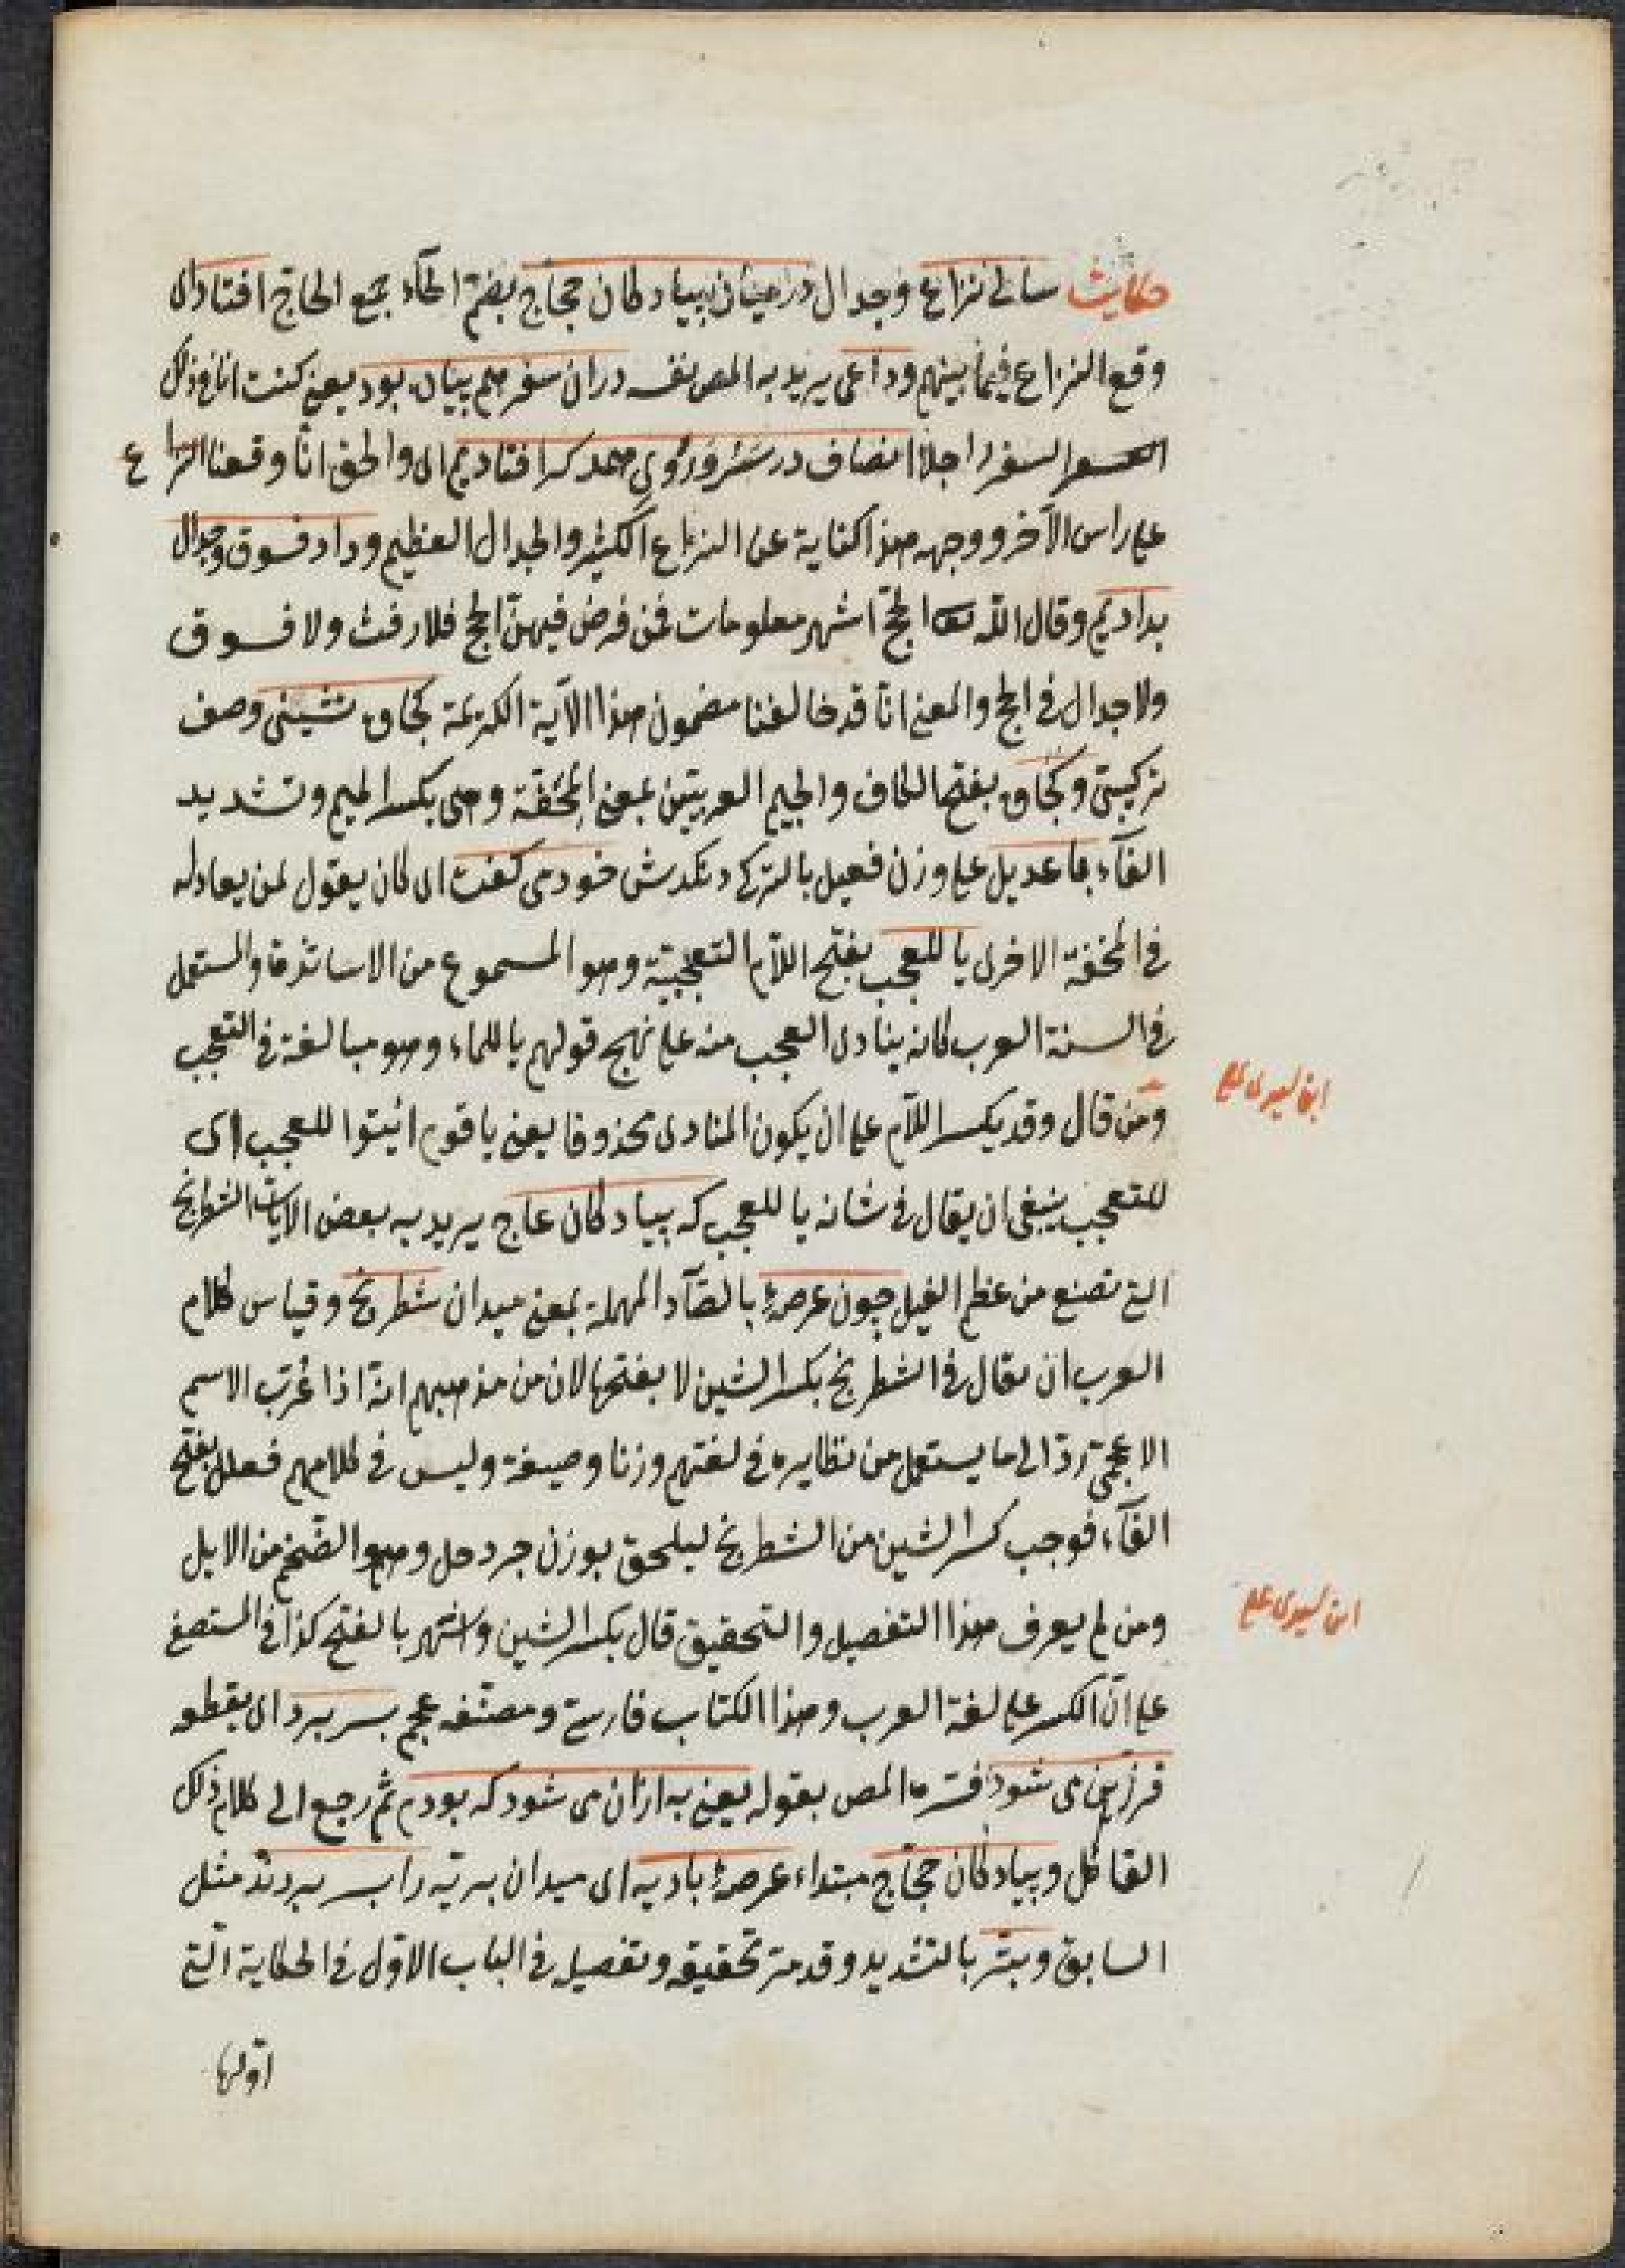 حكايت سالى نزاع وجدال در ميان پيادكان حجاج بضم الحاء جمع الحاج افتاد اى
وقع النزاع فيما بينهم وداعى يريد به المصنف دران سفر هم پياده بود يعنى كنت انا فى ذلك
السفر راجلا انصاف در سر وروى همد كر افتاديم اى والحق انا وقعنا النزاع
على راس الآخر ووجهه هذا كناية عن النزاع الكثير والجدال العظيم وداد فسوق وجدال
بداديم وقال الله تعالى الحج اشهر معلومات فمن فرض فيهن الحج فلا رفث ولا فسوق
ولا جدال فى الحج والمعنى انا قد خالفنا مضمون هذا الآية الكريمة كجاوه نشينى وصف
تركيبى وكجاوه بفتح الكاف والجيم العربيتين بمعنى المحفة وهى بكسر الميم وتشديد
الفاء با عديل على وزن فعيل بالتركى دنكدش خود مى كفت اى كان يقول لمن يعادله
فى المحفة الاخرى يا للعجب بفتح اللام التعجبية وهو المسموع من الاساتذة والمستعمل
فى السنة العرب كانه ينادى العجب منه على نهج قولهم يا للماء وهو مبالغة فى التعجب
ومن قال وقد يكسر اللام على ان يكون المنادى محذوفا يعنى يا قوم ائيتوا للعجب اى
للتعجب ينبغى ان يقال فى شانه يا للعجب كه پيادكان عاج يريد به بعض الايات الشطرنج
التى تصنع من عظم الفيل چون عرصه بالصاد المهملة بمعنى ميدان شطرنج وقياس كلام
العرب ان يقال فى الشطرنج بكسر الشين لا بفتحها لان من مذهبهم انه اذا عرب الاسم
الاعجمى رد الى ما يستعمل من نظايره فى لغتهم وزنا وصيغة وليس فى كلامهم فعلل بفتح
الفاء فوجب كسر الشين من الشطرنج ليلحق بوزن جردحل وهو الضخم من الابل
ومن لم يعرف هذا التفصيل والتحقيق قال بكسر الشين واشتهر بالفتح كذا فى المستصفى
على ان الكسر على لغة العرب وهذا الكتاب فارسى ومصنفه عجم بسر برد اى يقطعه
فرزين مى شود فسره المص بقوله يعنى به ازان مى شود كه بودم ثم رجع الى كلام ذلك
القائل وپيادكان حجاج مبتداء عرصه باديه اى ميدان بريه را بسر بردند مثل
السابق وبتر بالتشديد وقد مر تحقيقه وتفصيله فى الباب الاول فى الحكاية التى
اولها
ابن سيدى على
ابن سيدى على